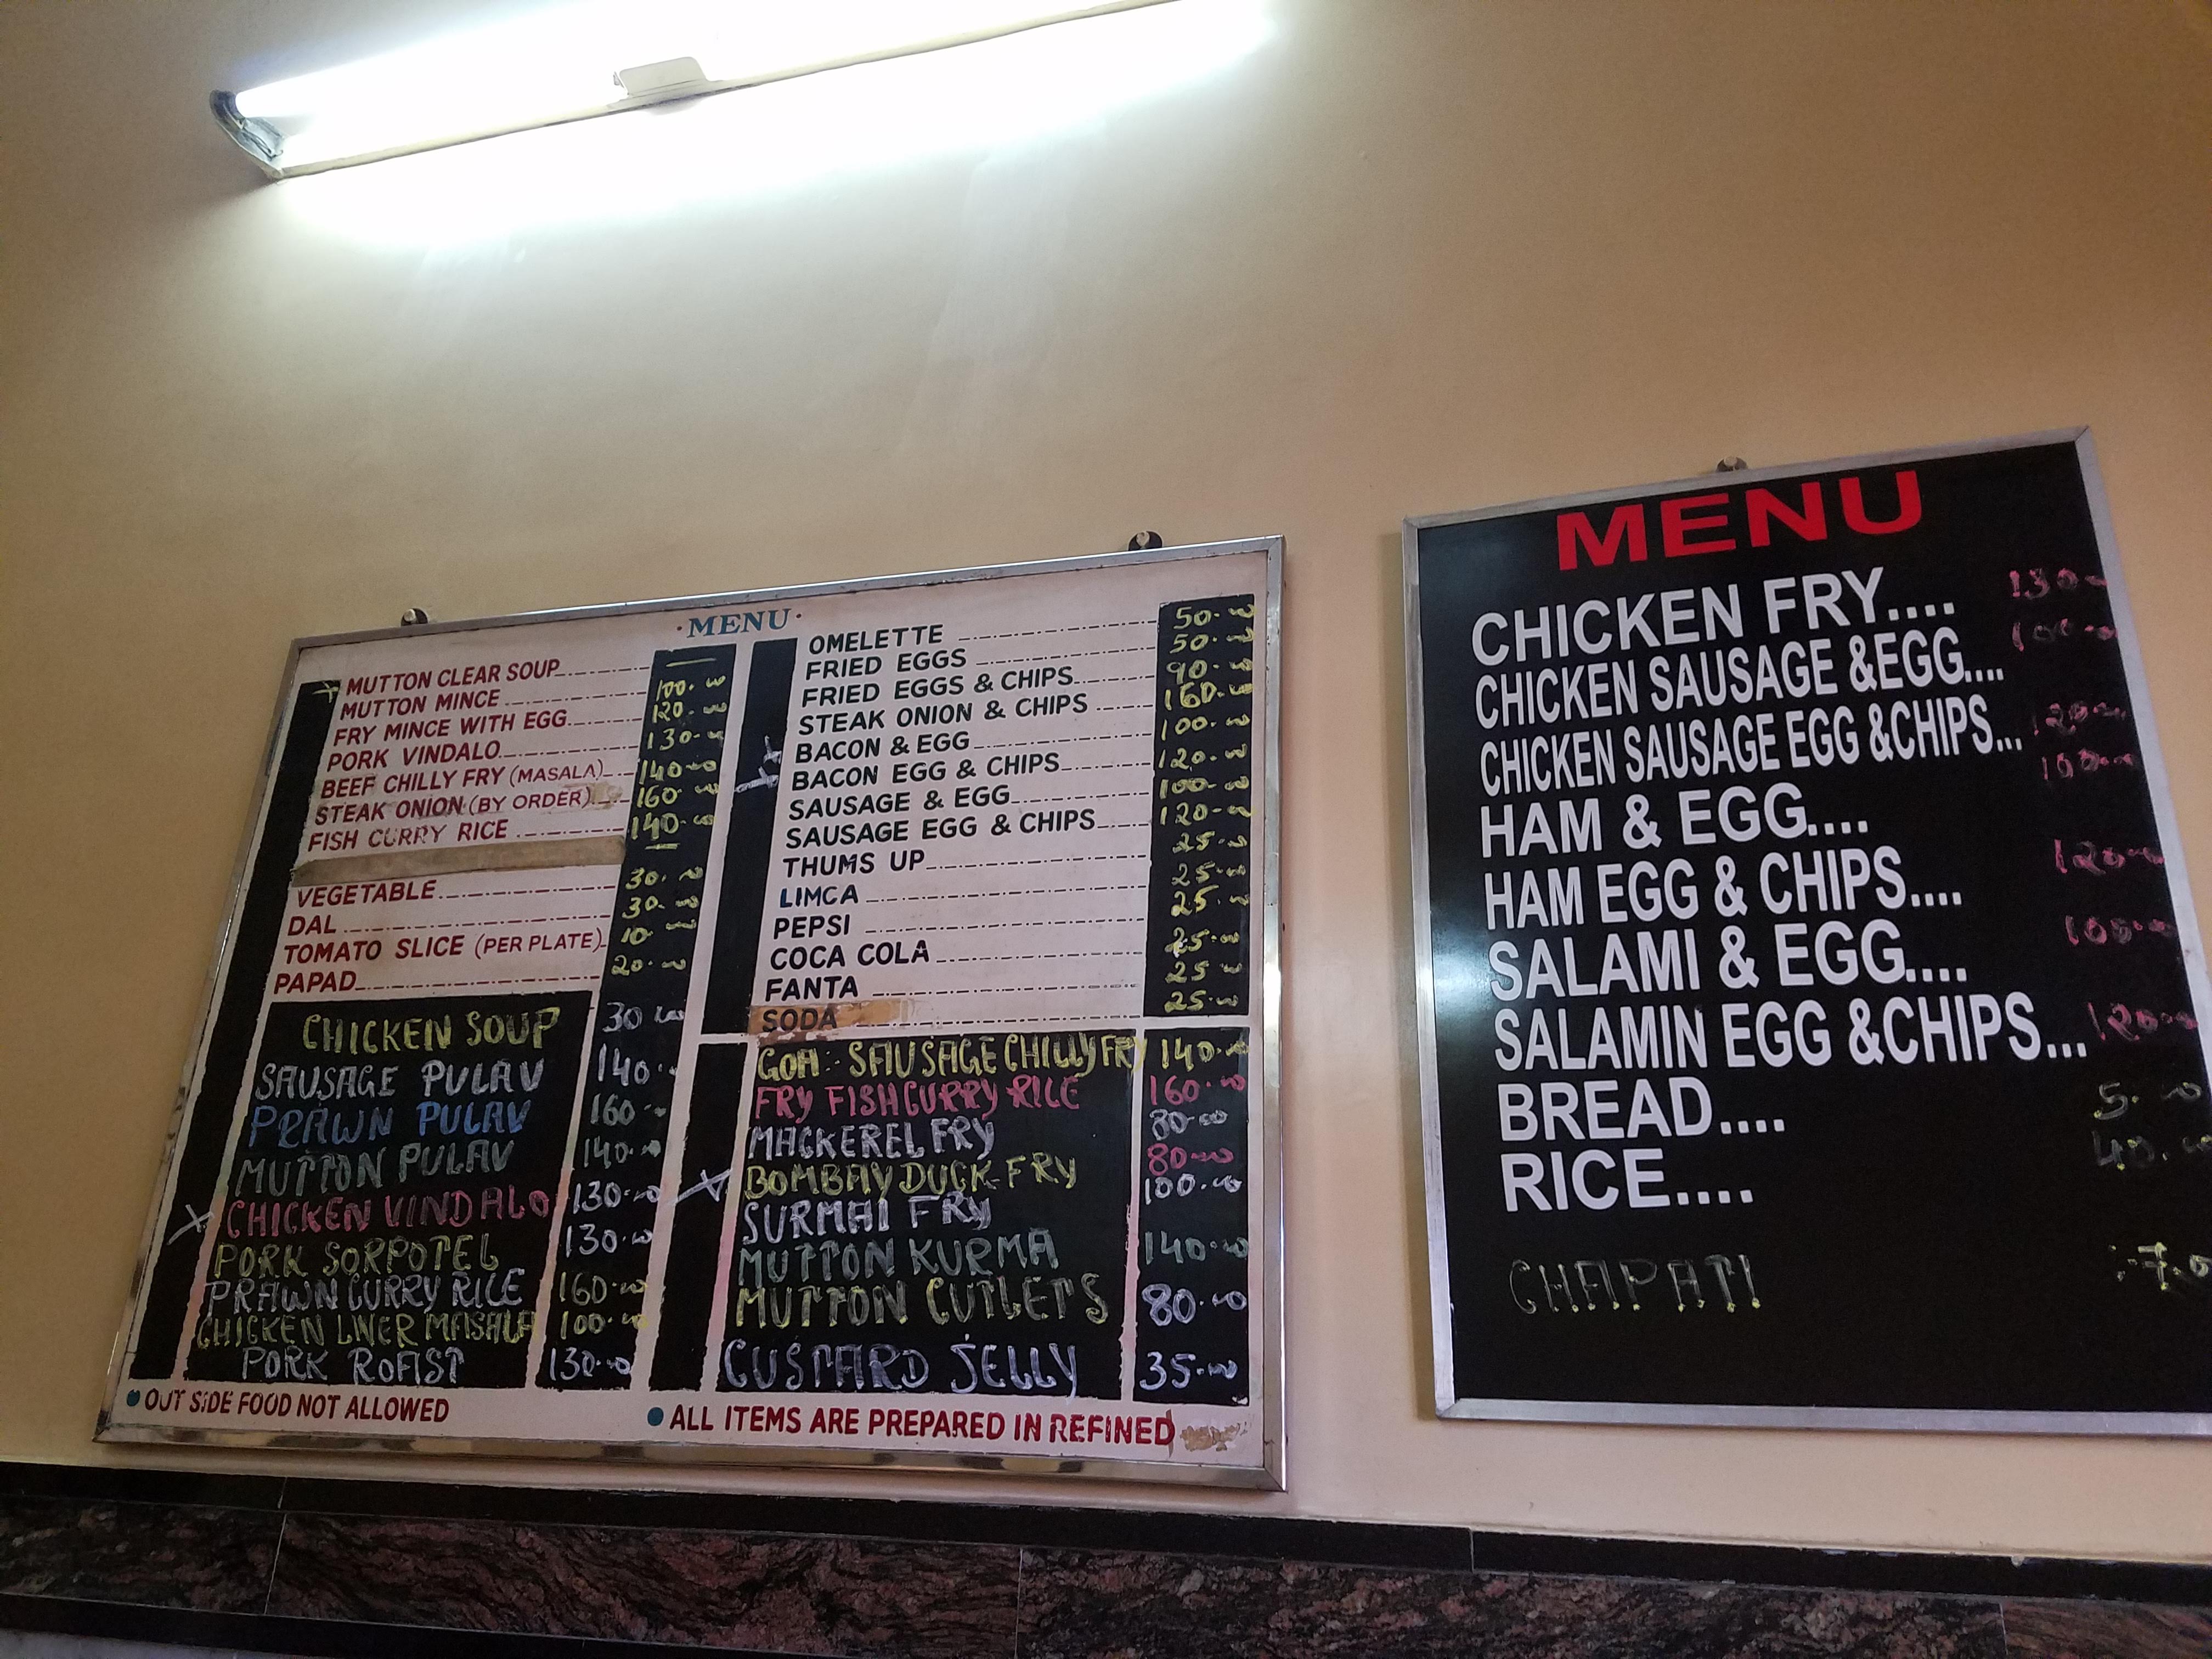 MENU
MUTTON CLEAR SOUP
MUTTON MINCE 100.00
FRY MINCE WITH EGG 120.00
PORK VINDALO 130.00
BEEF CHILLY FRY (MASALA) 140.00
STEAK ONION (BY ORDER) 160.00
FISH CURRY RICE 140.00
VEGETABLE 30.00
DAL 30.00
TOMATO SLICE (PER PLATE) 10.00
PAPAD 20.00
CHICKEN SOUP 30.00
SAUSAGE PULAV 140.00
PRAWN PULAV 160.00
MUTTON PULAV 140.00
CHICKEN VINDALO 130.00
PORK SORPOTEL 130.00
PRAWN CURRY RICE 160.00
CHICKEN LIVER MASALA 100.00
PORK ROAST 130.00
OMELETTE 50.00
FRIED EGGS 50.00
FRIED EGGS & CHIPS 90.00
STEAK ONION & CHIPS 160.00
BACON & EGG 100.00
BACON EGG & CHIPS 120.00
SAUSAGE & EGG 100.00
SAUSAGE EGG & CHIPS 120.00
THUMS UP 25.00
LIMCA 25.00
PEPSI 25.00
COCA COLA 25.00
FANTA 25.00
SODA 25.00
GOA: SAUSAGE CHILLY FRY 140.00
FRY FISH CURRY RICE 160.00
MACKEREL FRY 80.00
BOMBAY DUCK FRY 80.00
SURMAI FRY 100.00
MUTTON KURMA 140.00
MUTTON CUTLETS 80.00
CUSTARD JELLY 35.00
OUT SIDE FOOD NOT ALLOWED
ALL ITEMS ARE PREPARED IN REFINED
MENU
CHICKEN FRY.... 130.00
CHICKEN SAUSAGE &EGG.... 100.00
CHICKEN SAUSAGE EGG &CHIPS... 120.00
HAM & EGG.... 100.00
HAM EGG & CHIPS.... 120.00
SALAMI & EGG.... 100.00
SALAMIN EGG &CHIPS... 120.00
BREAD.... 5.00
RICE.... 40.00
CHAPATI 7.0